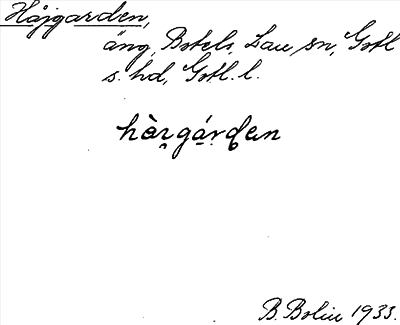 Håjgarden,
äng, Botels, Lau sn, Gotl
s. hd, Gotl. l.
hàrgárden
B. Bolin 1933.